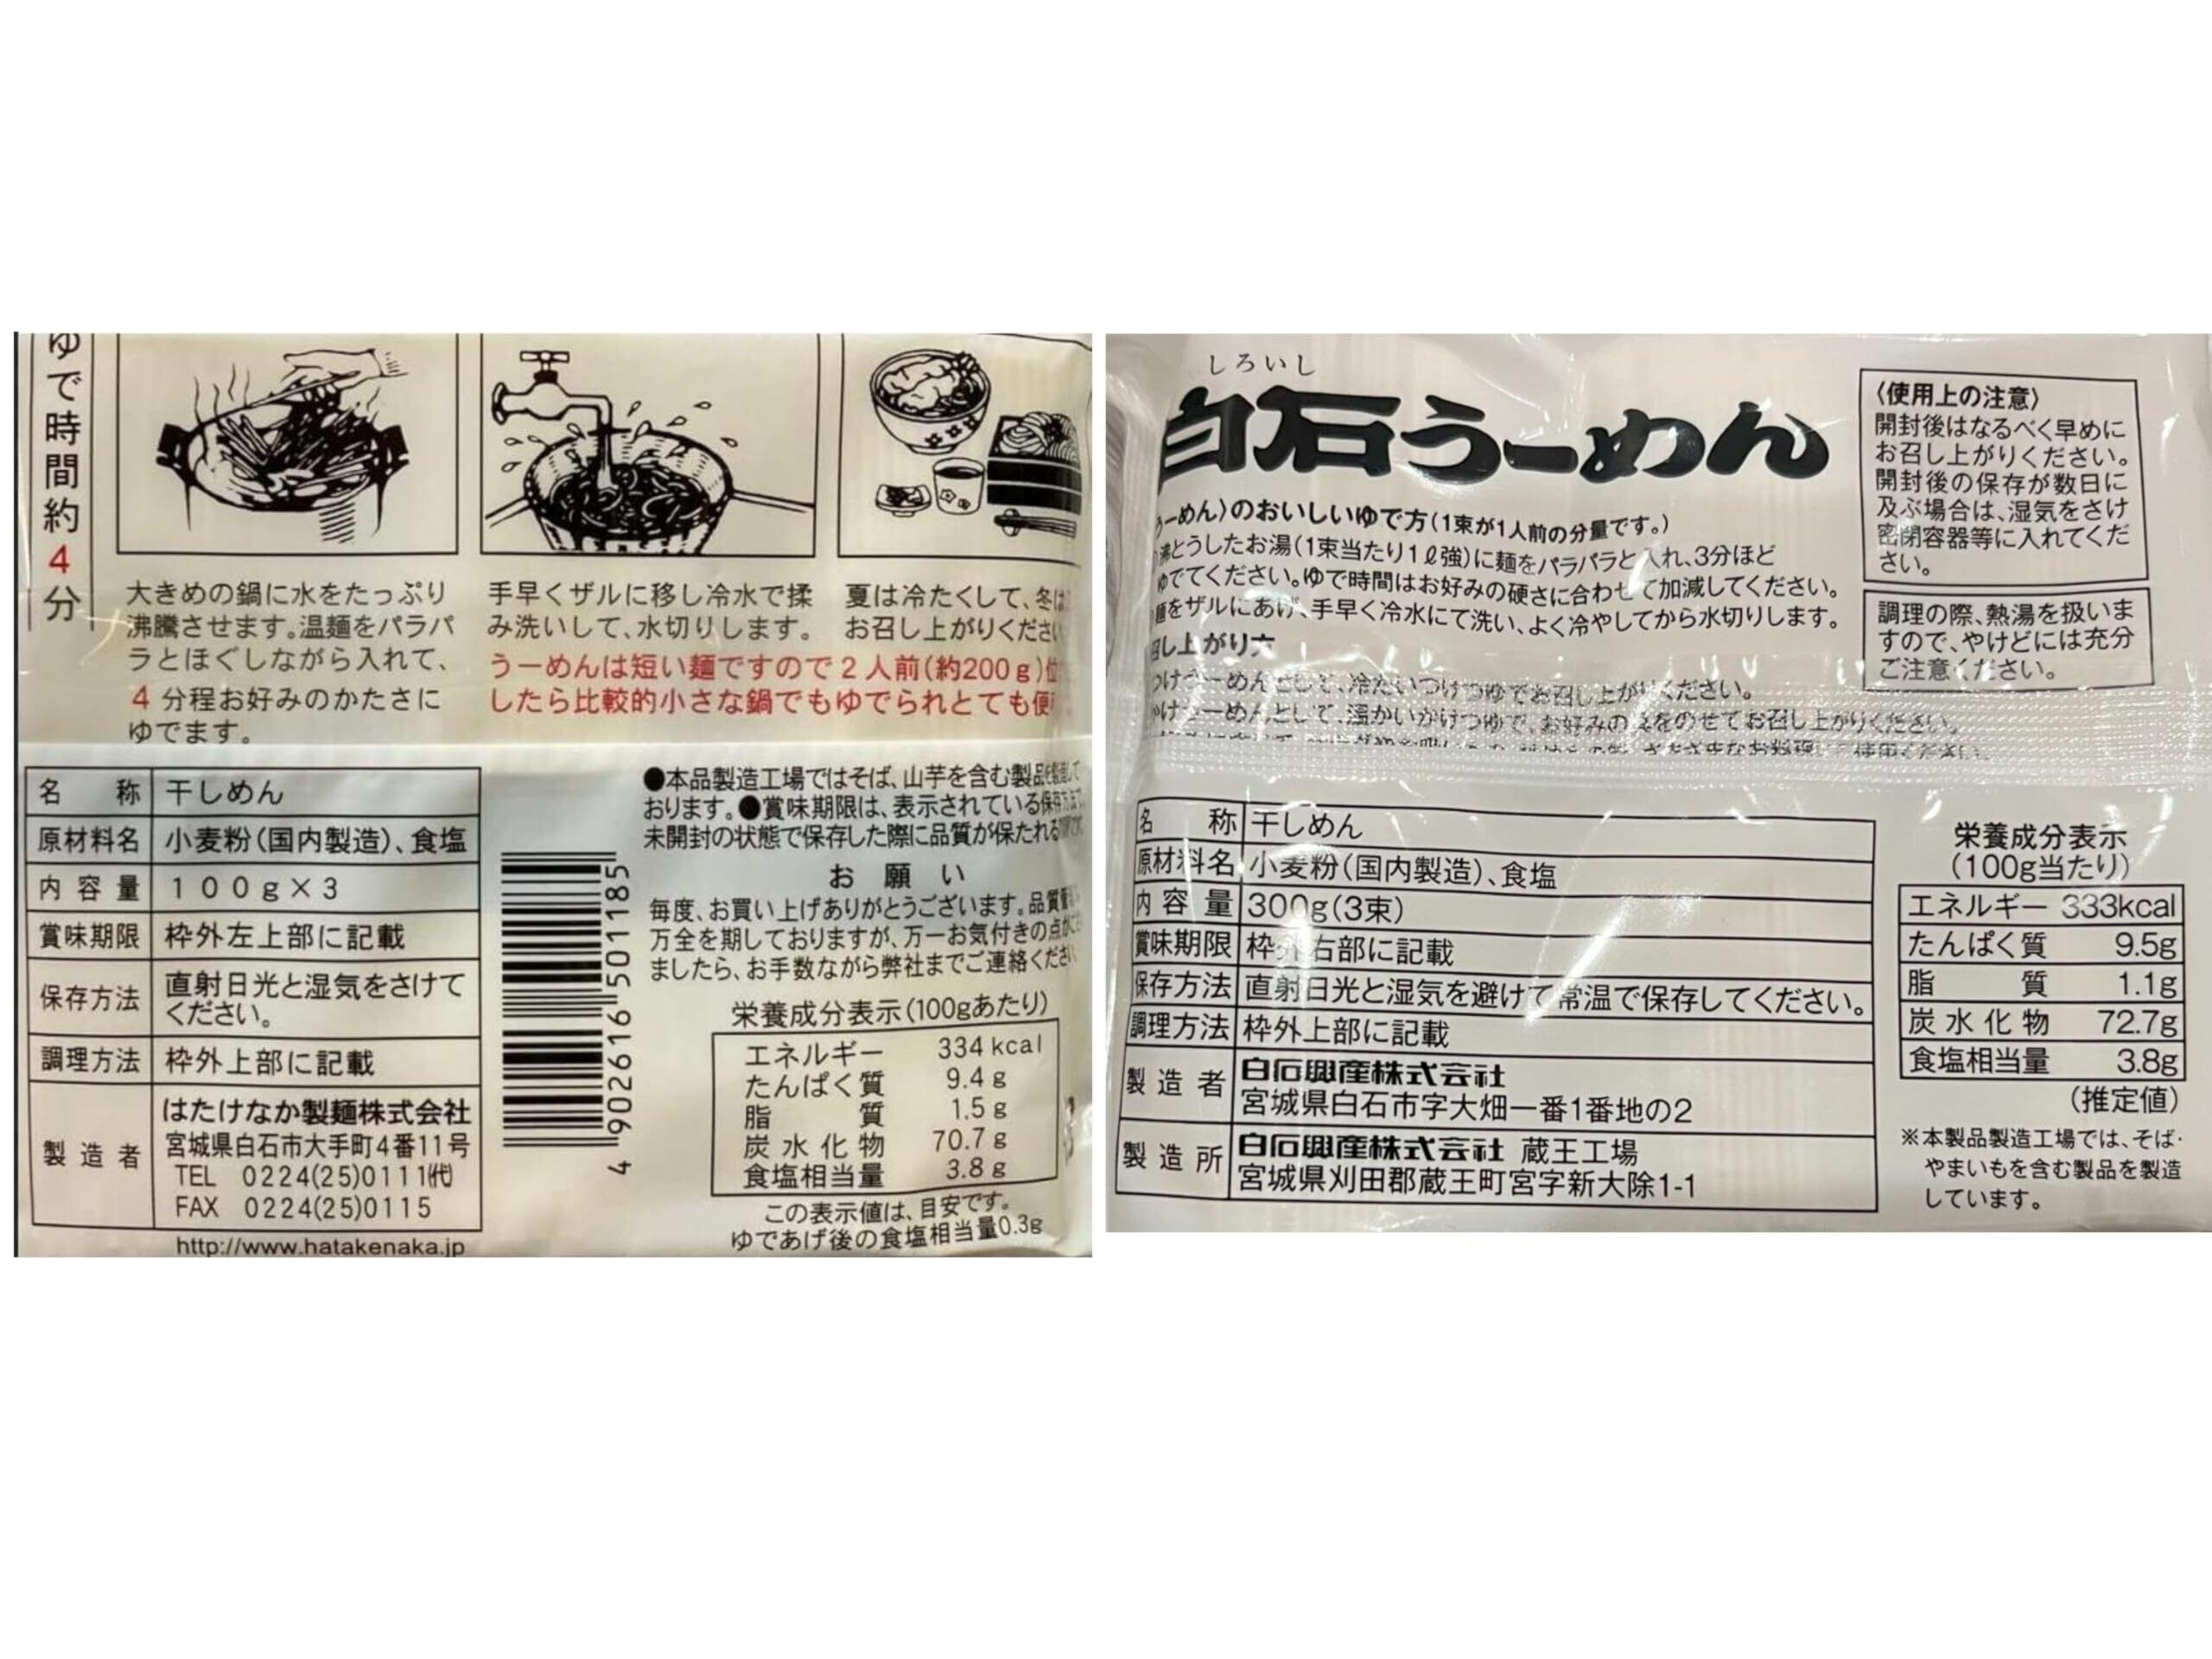 ゆで時間約4分
大きめの鍋に水をたっぷり
沸騰させます。温麺をパラパ
ラとほぐしながら入れて、
4分程お好みのかたさに
ゆでます。
手早くザルに移し冷水で揉
み洗いして、水切りします。
夏は冷たくして、冬は
お召し上がりくださ
うーめんは短い麺ですので2人前(約200g)位
したら比較的小さな鍋でもゆでられとても便
名 称 干しめん
原材料名 小麦粉(国内製造)、食塩
内容量 100g×3
賞味期限 枠外左上部に記載
保存方法 直射日光と湿気をさけて
ください。
調理方法 枠外上部に記載
製造者 はたけなか製麺株式会社
宮城県白石市大手町4番11号
TEL 0224(25)0111㈹
FAX 0224(25)0115
http://www.hatakenaka.jp
4 902616 501185
●本品製造工場ではそば、山芋を含む製品を製造して
おります。●賞味期限は、表示されている保存方法で
未開封の状態で保存した際に品質が保たれる
お願い
毎度、お買い上げありがとうございます。品質
万全を期しておりますが、万一お気付きの点が
ましたら、お手数ながら弊社までご連絡くださ
栄養成分表示(100gあたり)
エネルギー 334kcal
たんぱく質 9.4g
脂 質 1.5g
炭水化物 70.7g
食塩相当量 3.8g
この表示値は、目安です。
ゆであげ後の食塩相当量0.3g
しろいし
白石うーめん
うーめん〉のおいしいゆで方(1束が1人前の分量です。)
沸とうしたお湯(1束当たり1ℓ強)に麺をパラパラと入れ、3分ほど
ゆでてください。ゆで時間はお好みの硬さに合わせて加減してください。
麺をザルにあげ、手早く冷水にて洗い、よく冷やしてから水切りします。
召し上がり方
つけうーめんとして、冷たいつけつゆでお召し上がりください。
かけうーめんとして、温かいかけつゆで、お好みの具をのせてお召し上がりください。
さまざまなお料理に ご使用ください。
〈使用上の注意〉
開封後はなるべく早めに
お召し上がりください。
開封後の保存が数日に
及ぶ場合は、湿気をさけ
密閉容器等に入れてくだ
さい。
調理の際、熱湯を扱いま
すので、やけどには充分
ご注意ください。
名 称 干しめん
原材料名 小麦粉(国内製造)、食塩
内容量 300g(3束)
賞味期限 枠外右部に記載
保存方法 直射日光と湿気を避けて常温で保存してください。
調理方法 枠外上部に記載
製造者 白石興産株式会社
宮城県白石市字大畑一番1番地の2
製造所 白石興産株式会社 蔵王工場
宮城県刈田郡蔵王町宮字新大除1-1
栄養成分表示
(100g当たり)
エネルギー 333kcal
たんぱく質 9.5g
脂 質 1.1g
炭水化物 72.7g
食塩相当量 3.8g
(推定値)
※本製品製造工場では、そば・
やまいもを含む製品を製造
しています。